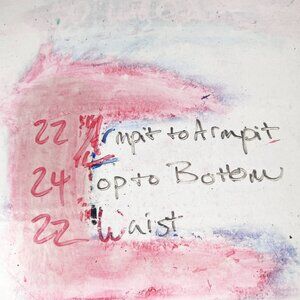 22 Armpit to Armpit
24 Top to Bottom
22 Waist